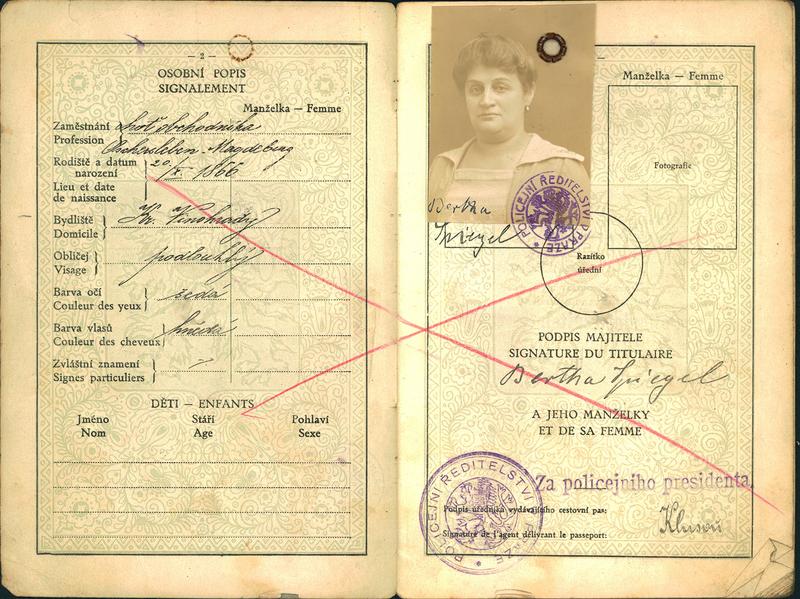 — 2 —
OSOBNÍ POPIS
SIGNALEMENT
Manželka — Femme
Zaměstnání choť obchodníka
Profession
Oschersleben - Magdeburg
Rodiště a datum narození 20./X. 1866
Lieu et date de naissance
Bydliště Kr. Vinohrady
Domicile
Obličej podlouhlý
Visage
Barva očí šedá
Couleur des yeux
Barva vlasů hnědá
Couleur des cheveux
Zvláštní znamení
Signes particuliers
DĚTI — ENFANTS
Jméno Stáří Pohlaví
Nom Age Sexe
Manželka — Femme
Fotografie
POLICEJNÍ ŘEDITELSTVÍ V PRAZE
Bertha
Spiegel
Razítko
úřední
PODPIS MAJITELE
SIGNATURE DU TITULAIRE
Bertha Spiegel
A JEHO MANŽELKY
ET DE SA FEMME
POLICEJNÍ ŘEDITELSTVÍ V PRAZE
Za policejního presidenta
Podpis úředníka vydávajícího cestovní pas:
Signature de l'agent délivrant le passeport: